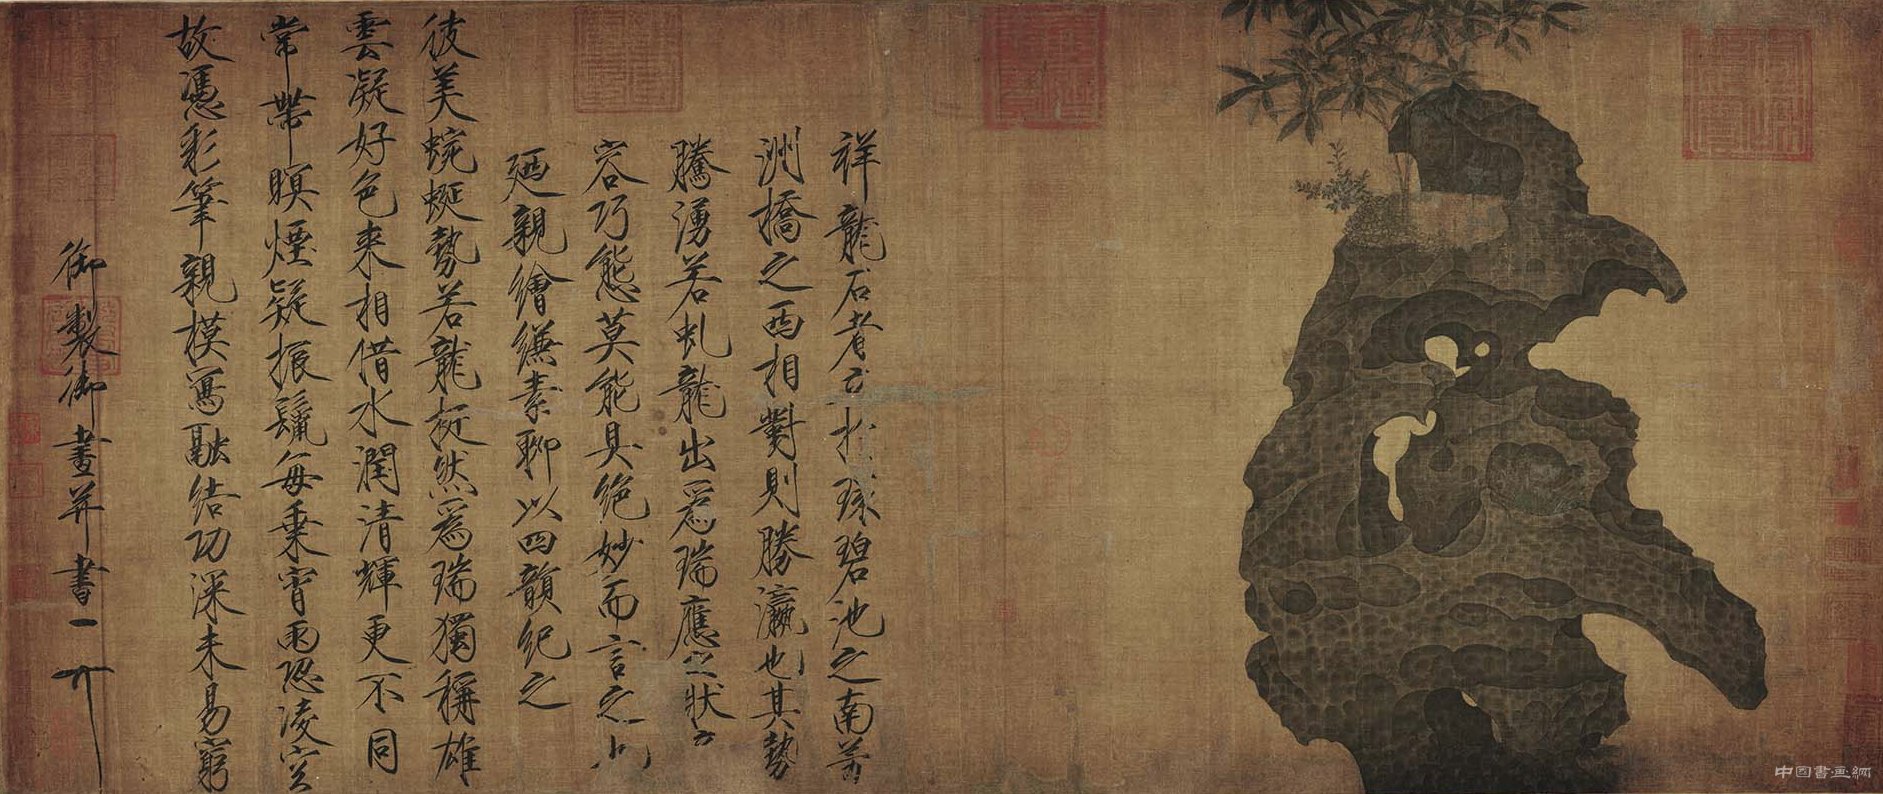 祥龍石者立於環碧池之南芳
洲橋之西相對則勝瀛也其勢
騰湧若虬龍出爲瑞應之狀奇
容巧態莫能具絶妙而言之也
廼親繪縑素聊以四韻紀之
彼美蜿蜒勢若龍挺然爲瑞獨稱雄
雲凝好色來相借水潤清輝更不同
常帶暝煙疑振鬣每乘宵雨恐凌空
故憑彩筆親模寫融結功深未易窮
御製御畫并書
中国書画網